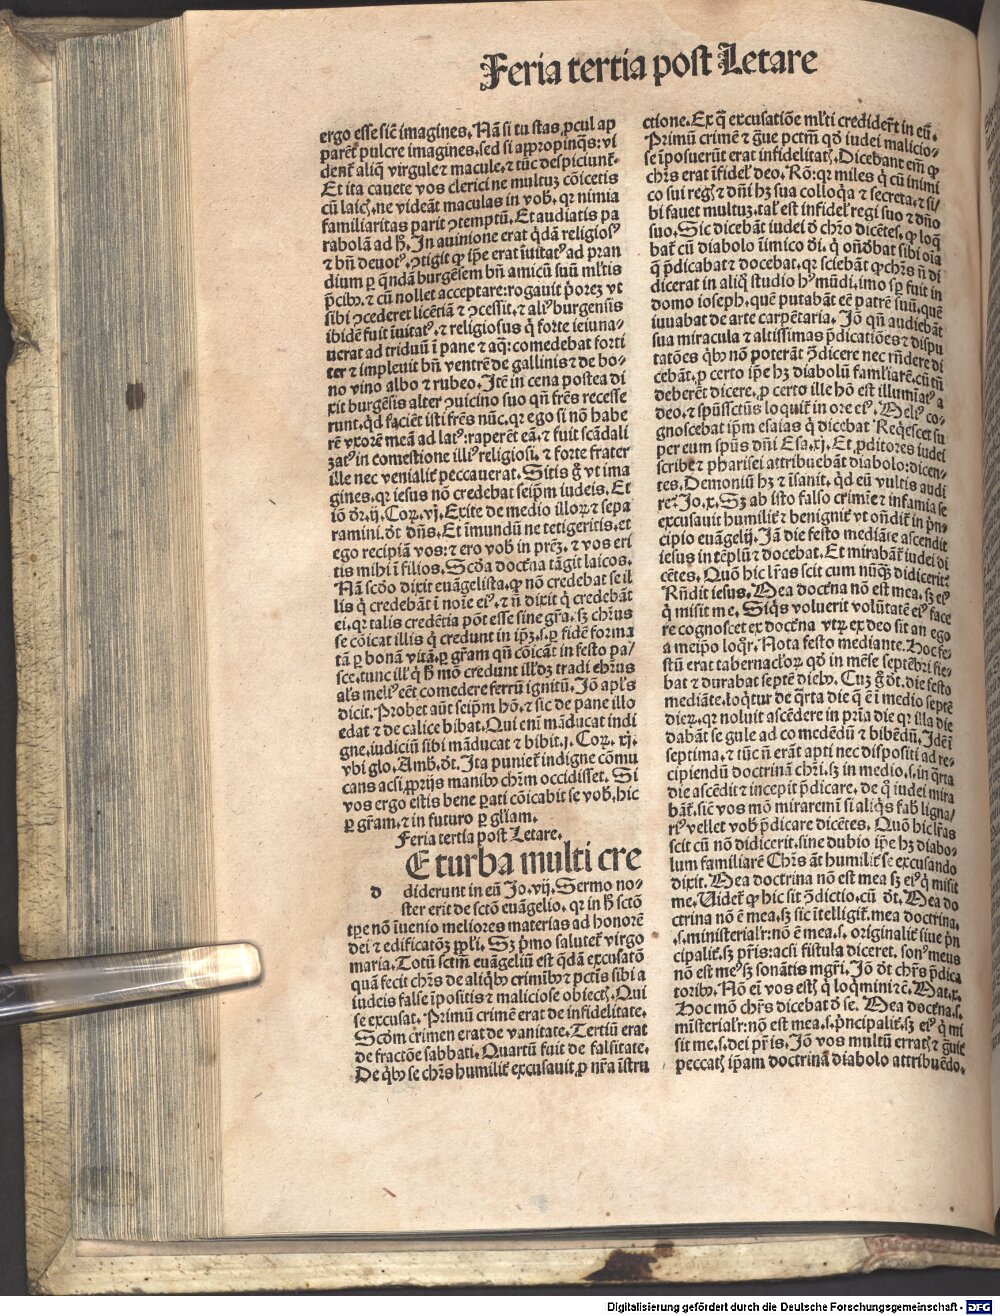 Feria tertia post Letare
ergo esse sicẽ imagines. Nã si tu stas ꝓcul ap
parẽt pulcre imagines. sed si appropinqs: vi
denť aliq̃ virgule ⁊ macule. ⁊ tũc despiciunť.
Et ita cauete vos clerici ne multuꝫ cõicetis
cũ laicꝭ. ne videãt maculas in vob. qꝛ nimia
familiaritas parit ꝯtemptũ. Et audiatis pa
rabolã ad ħ. In auinione erat q̃dã religiosꝰ
⁊ bñ deuotꝰ. ꝯtigit ꝙ ip̃e erat ĩuitatꝰ ad pran
dium ꝑ quẽdã burgẽsem bñ amicũ suũ ml̃tis
p̃cibꝫ. ⁊ cũ nollet acceptare: rogauit p̃oreꝫ vt
sibi ꝯcederet licẽtiã ⁊ ꝯcessit. ⁊ aliꝰ burgensis
ibidẽ fuit ĩuitatꝰ. ⁊ religiosus q̃ forte ieiuna-
uerat ad triduũ ĩ pane ⁊ aq̃: comedebat forti
ter ⁊ impleuit bñ ventrẽ de gallinis ⁊ de bo-
no vino albo ⁊ rubeo. Itẽ in cena postea di
xit burgẽsis alter ꝯuicino suo qñ frẽs recesse
runt. qd̃ faciẽt isti frẽs nũc. qꝛ ego si nõ habe
rẽ vxorẽ meã ad latꝰ: raperẽt eã. ⁊ fuit scãdali
zatꝰ in comestione illiꝰ religiosi. ⁊ forte frater
ille nec venialiť peccauerat. Sitis g̃ vt ima
gines. qꝛ iesus nõ credebat seip̃m iudeis. Et
iõ dꝛ̃. ij. Coꝝ. vj. Exite de medio illoꝝ ⁊ sepa
ramini. dt̃ dñs. Et ĩmundũ ne tetigeritis. et
ego recipiã vos: ⁊ ero vob̃ in prẽꝫ. ⁊ vos eri
tis mihi ĩ filios. Scd̃a doctr̃na tãgit laicos.
Nã scd̃o dixit euãgelista. ꝙ nõ credebat se il
lis q̃ credebãt ĩ noĩe eiꝰ. ⁊ ñ dixit q̃ credebãt
ei. qꝛ talis credẽtia põt esse sine gr̃a. sꝫ chr̃us
se cõicat illis q̃ credunt in ip̃ꝫ. s. ꝑ fidẽ forma
tã ꝑ bonã vitã. ꝑ gr̃am qñ cõicãt in festo pa/
sce. tunc ill̃ q̃ ħ mõ credunt illdꝫ tradi chr̃us
al̃s meliꝰ eẽt comedere ferrũ ignitũ. Iõ apl̃s
dicit. Probet aũt seip̃m hõ. ⁊ sic de pane illo
edat ⁊ de calice bibat. Qui eni᷈ mãducat indi
gne. iudiciũ sibi mãducat ⁊ bibit. j. Coꝝ. xj.
vbi glo. Amb. dt̃. Ita punieť indigne cõmu
cans acsi ꝓprijs manibꝫ chr̃m occidisset. Si
vos ergo estis bene ꝑati cõicabit se vob̃. hic
ꝑ gr̃am. ⁊ in futuro ꝑ gl̃iam.
Feria tertia post Letare.
E turba multi cre
d diderunt in eũ Jo. vij. Sermo no-
ster erit de sctõ euãgelio. qꝛ in ħ sctõ
tꝑe nõ ĩuenio meliores materias ad honorẽ
dei ⁊ edificatõꝫ ppl̃i. Sꝫ p̃mo saluteť virgo
maria. Totũ sctm̃ euãgeliũ est q̃dã excusatõ
quã fecit chr̃s de aliqbꝫ crimibꝫ ⁊ pctĩs sibi a
iudeis false ĩpositis ⁊ maliciose obiectꝭ. Qui
se excusat. Primũ crimẽ erat de infidelitate.
Scd̃m crimen erat de vanitate. Tertiũ erat
de fractõe sabbati. Quartũ fuit de falsitate.
De qbꝫ se chr̃s humiliť excusauit ꝓ nr̃a ĩstru
ctione. Ex q̃ excusatiõe ml̃ti crediderť in eũ.
Primũ crimẽ ⁊ g̃ue pctm̃ qd̃ iudei malicio-
se ĩposuerũt erat infidelitatꝭ. Dicebant em̃ ꝙ
chr̃s erat ĩfidel̃ deo. Rõ: qꝛ miles q̃ cũ inimi
co sui regꝭ ⁊ dñi hꝫ sua colloq̃a ⁊ secreta. ⁊ si/
bi fauet multuꝫ. tal̃ est infidel̃ regi suo ⁊ dño
suo. Sic dicebãt iudei d̃ chr̃o dicẽtes. ꝙ loq̃
baťˀ cũ diabolo ĩimico dei. q̃ oñdebat sibi oĩa
q̃ p̃dicabat ⁊ docebat. qꝛ sciebãt ꝙ chr̃s ñ di
dicerat in aliq̃ studio hꝰ mũdi. imo sꝑ fuit in
domo ioseph. quẽ putabãt eẽ patrẽ suũ. quẽ
iuuabat de arte carpẽtaria. Iõ qñ audiebãt
sua miracula ⁊ altissimas p̃dicatiões ⁊ dispu
tatões qbꝫ nõ poterãt ꝯdicere nec rñdere di
cebãt. ꝓ certo ip̃e hꝫ diabolũ familiarẽ. cũ tñ
deberẽt dicere. ꝓ certo ille hõ est illumĩatꝰ a
deo. ⁊ sp̃ũssctũs loquiť in ore eiꝰ. Meliꝰ co-
gnoscebat ip̃m esaias q̃ dicebat Reqescet su
per eum sp̃us dñi Esa. xj. Et ꝓditores iudei
scribe ⁊ pharisei attribuebãt diabolo: dicen-
tes. Demoniũ hꝫ ⁊ ĩsanit. qd̃ eũ vultis audi
re: Jo. x. Sꝫ ab isto falso crimĩe ⁊ infamia se
excusauit humiliť ⁊ benigniť vt oñdiť in prĩ-
cipio euãgelij. Iã die festo mediãte ascendit
iesus in tẽplũ ⁊ docebat. Et mirabãť iudei di
cẽtes. Quõ hic lr̃as scit cum nũqꝫ didicerit:
Rñdit iesus. Mea doctr̃na nõ est mea. sꝫ eiꝰ
q̃ misit me. Siq̃s voluerit volũtatẽ eiꝰ face
re cognoscet ex doctr̃na vtꝝ ex deo sit an ego
a meip̃o loq̃r. Nota festo mediante. Hoc fe-
stũ erat tabernacl̃oꝝ qd̃ in mẽse septẽbri fie-
bat ⁊ durabat septẽ diebꝫ. Cuꝫ g̃ dt̃. die festo
mediãte. loq̃tur de q̃rta die q̃ ẽ ĩ medio septẽ
dieꝝ. qꝛ noluit ascẽdere in prĩa die qꝛ illa die
dabãt se gule ad comedẽdũ ⁊ bibẽdũ. Idẽ ĩ
septima. ⁊ tũc ñ erãt apti nec dispositi ad re-
cipiendũ doctrinã chr̃i. sꝫ in medio. s. in q̃rta
die ascẽdit ⁊ incepit p̃dicare. de q̃ iudei mira
bãť. sicẽ vos mõ miraremĩ si aliq̃s fab̃ ligna/
riꝰ vellet vob̃ p̃dicare dicẽtes. Quõ hic lr̃as
scit cũ nõ didicerit. sine dubio ip̃e hꝫ diabo-
lum familiarẽ Chr̃s ãt humiliť se excusando
dixit. Mea doctrina nõ est mea sꝫ eiꝰ q̃ misit
me. Uideť ꝙ hic sit ꝯdictio. cũ dt̃. Mea do
ctrina nõ ẽ mea. sꝫ sic ĩtelligiť. mea doctrina.
.s. ministerialr̃: nõ ẽ mea. s. originaliť siue prĩ
cipaliť. sꝫ pr̃is: acsi fistula diceret. sonꝰ meus
nõ est meꝰ sꝫ sonãtis mgr̃i. Iõ dt̃ chr̃s p̃dica
toribꝫ. Nõ eĩ vos estꝭ q̃ loq̃mini ⁊c̃. Mat. x.
Hoc mõ chr̃s dicebat d̃ se. Mea doctr̃na. s.
mĩsterialr̃: nõ est mea. s. prĩcipaliť. sꝫ eiꝰ q̃ mi
sit me. s. dei pr̃is. Iõ vos multũ erratꝭ ⁊ g̃uiť
peccatꝭ ip̃am doctrinã diabolo attribuẽdo.
Digitalisierung gefördert durch die Deutsche Forschungsgemeinschaft - DFG